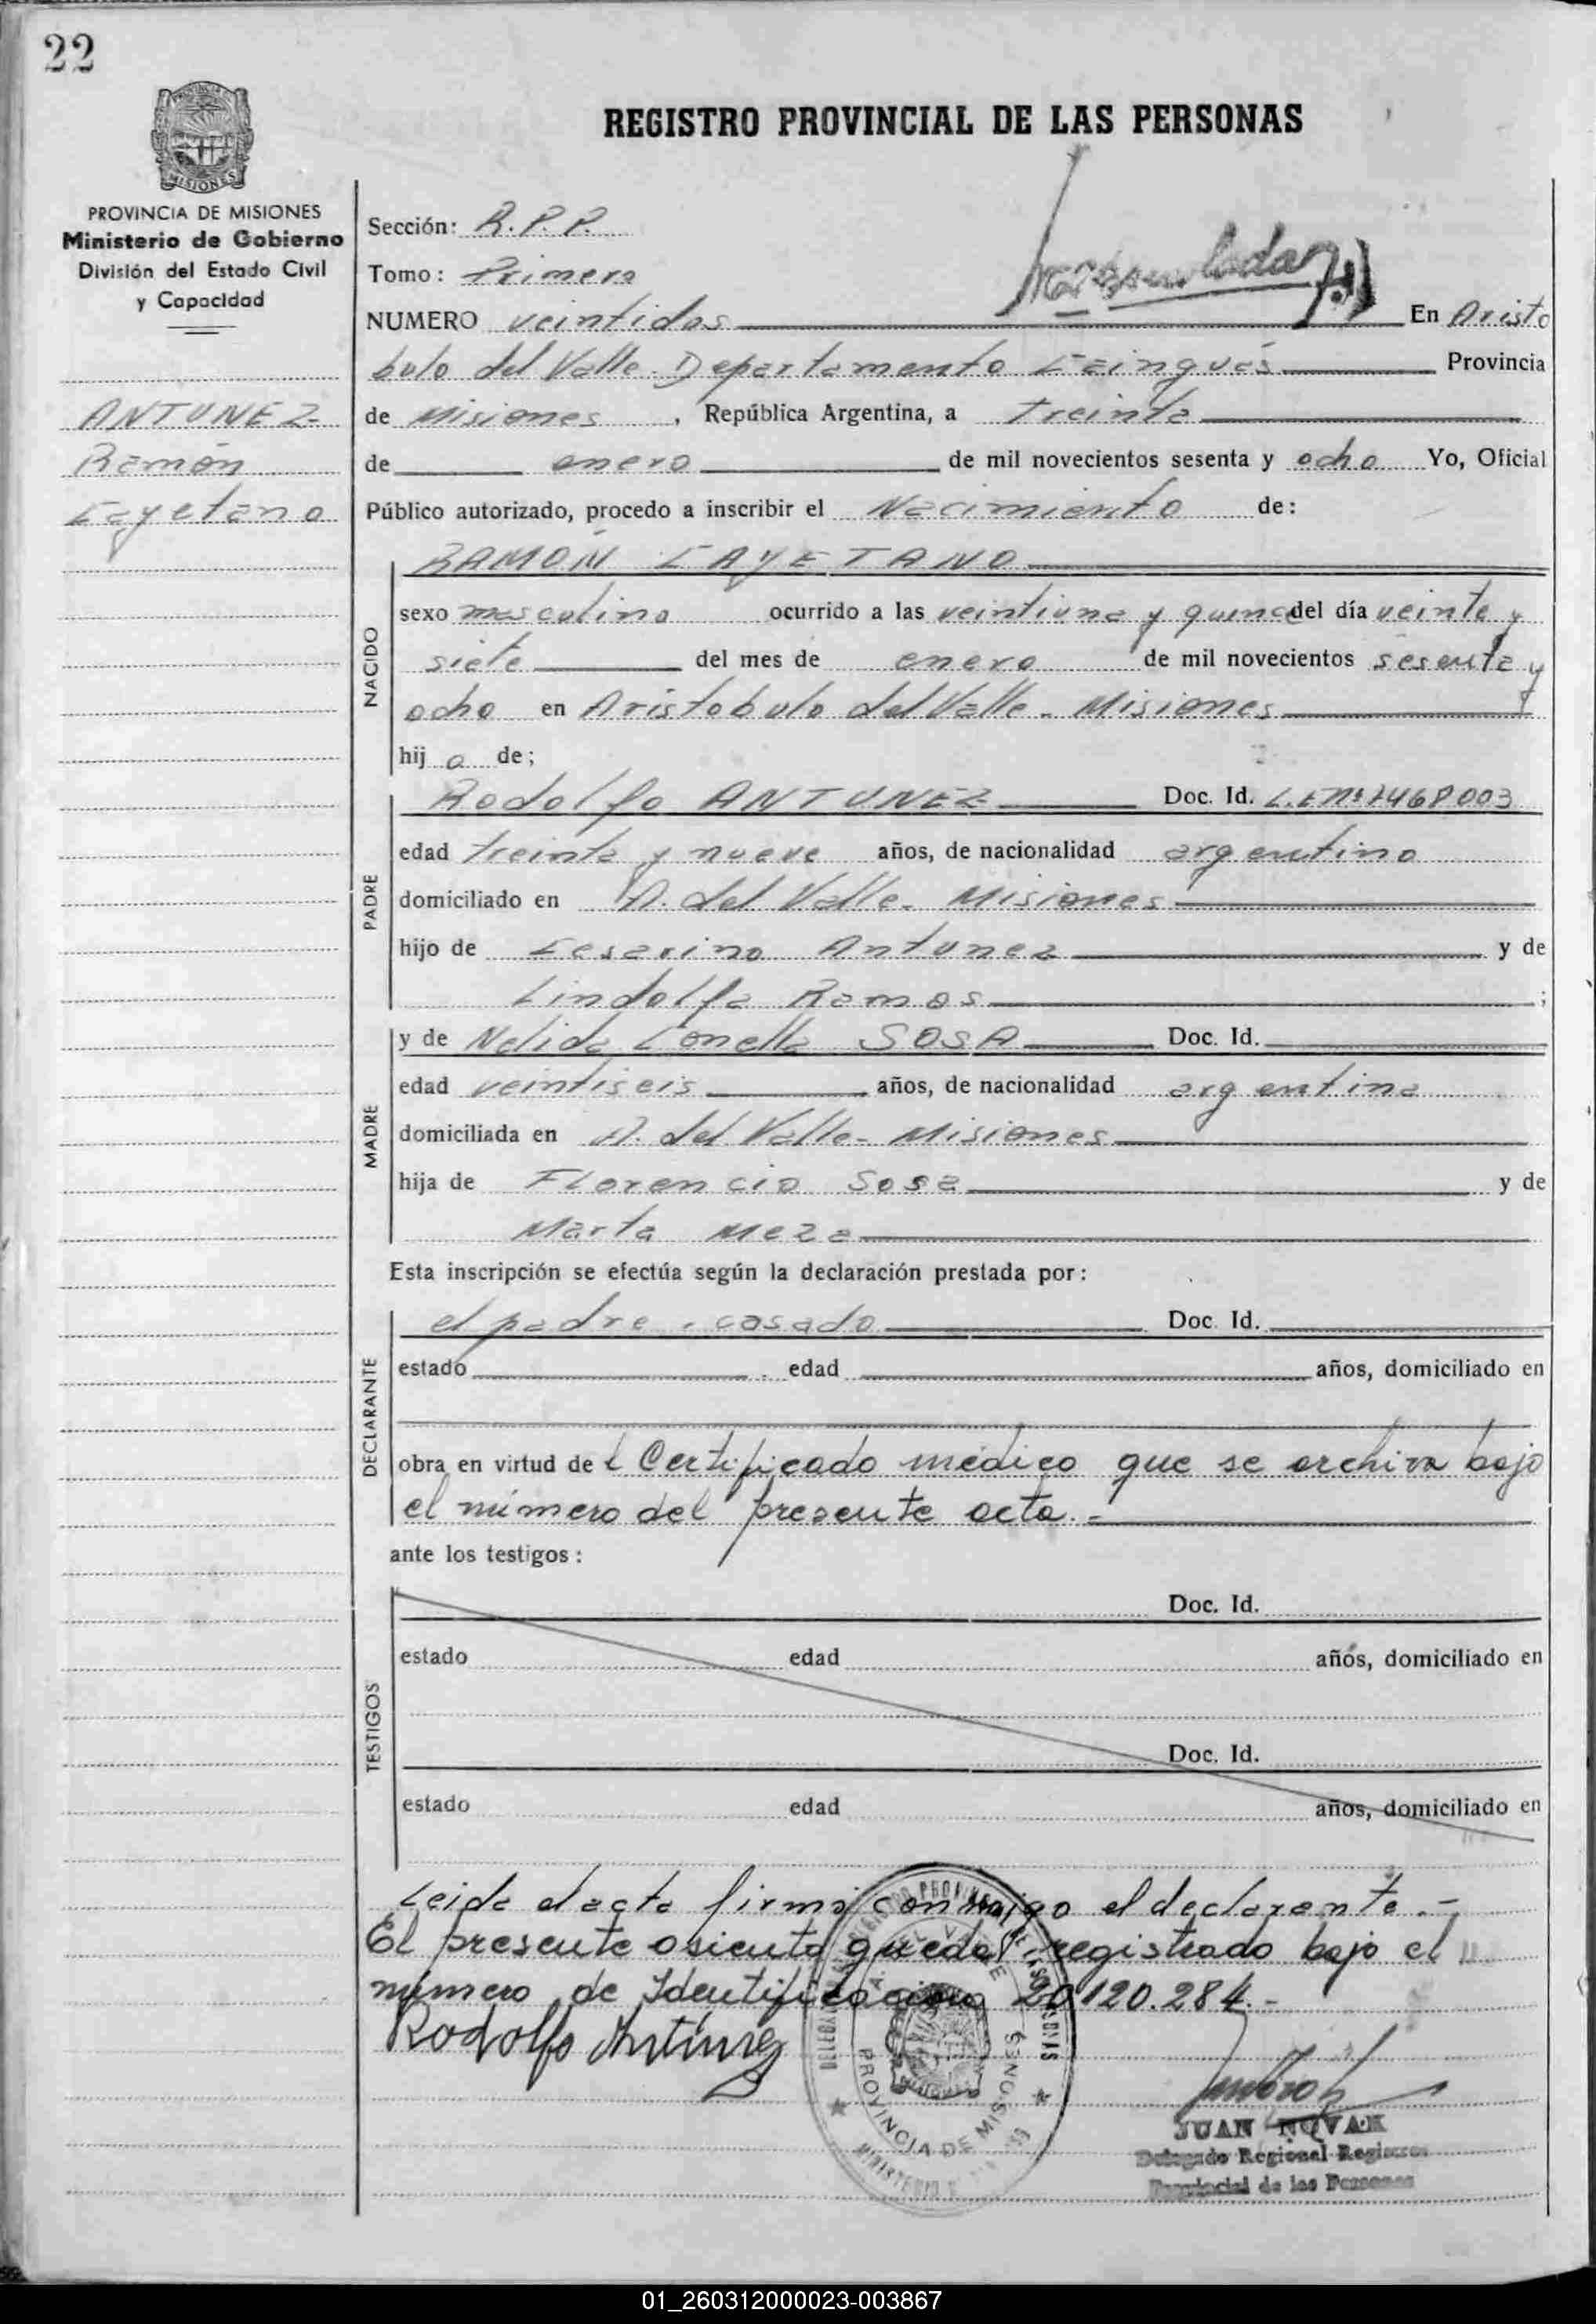 22
REGISTRO PROVINCIAL DE LAS PERSONAS
PROVINCIA DE MISIONES
Ministerio de Gobierno
División del Estado Civil
y Capacidad
ANTUNEZ
Ramón
Cayetano
Sección: R.P.P.
Tomo: Primero
NUMERO veintidos En Aristo
bulo del Valle Departamento Cainguás Provincia
de Misiones, República Argentina, a treinta
de enero de mil novecientos sesenta y ocho Yo, Oficial
Público autorizado, procedo a inscribir el Nacimiento de:
NACIDO
RAMÓN CAYETANO
sexo masculino ocurrido a las veintiuna y quince del día veinte y
siete del mes de enero de mil novecientos sesenta y
ocho en Aristobulo del Valle - Misiones
hij o de;
PADRE
Rodolfo ANTUNEZ Doc. Id. L.E Nº 7468003
edad treinta y nueve años, de nacionalidad argentino
domiciliado en A. del Valle - Misiones
hijo de Cesarino Antunez y de
Lindolfa Ramos;
MADRE
y de Nelida SOSA Doc. Id.
edad veintiseis años, de nacionalidad argentina
domiciliada en A. del Valle - Misiones
hija de Florencio Sosa y de
Marta Meza
Esta inscripción se efectúa según la declaración prestada por:
DECLARANTE
el padre, casado Doc. Id.
estado edad años, domiciliado en
obra en virtud del Certificado médico que se archiva bajo
el número del presente acta.-
ante los testigos:
TESTIGOS
Doc. Id.
estado edad años, domiciliado en
Doc. Id.
estado edad años, domiciliado en
Leida el acta firma conmigo el declarante.-
El presente asiento queda registrado bajo el
número de Identificación 20.120.284.-
Rodolfo Antúnez
PROVINCIA DE MISIONES
JUAN NOVAK
Delegado Regional Registro
Provincial de las Personas
01_260312000023-003867